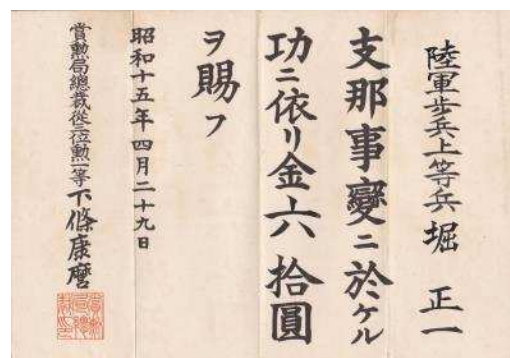 陸軍歩兵上等兵堀 正一
支那事變ニ於ケル
功ニ依リ金六拾圓
ヲ賜フ
昭和十五年四月二十九日
賞勲局總裁從三位勲一等下條康麿